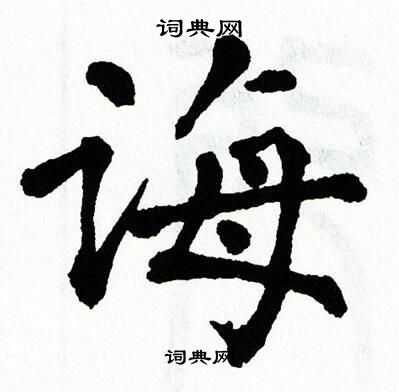 词典网
诲
词典网